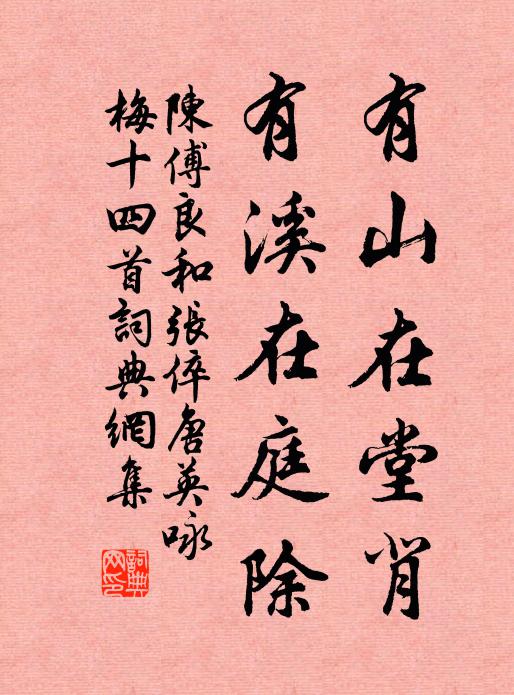 有山在堂背
有溪在庭除
陳傅良和張倅唐英咏
梅十四首詞典網集
詞典網印